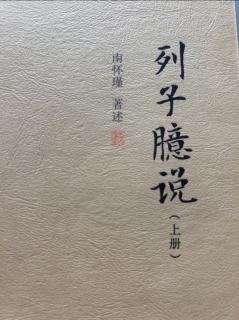 列子臆说
(上册)
南怀瑾 著述